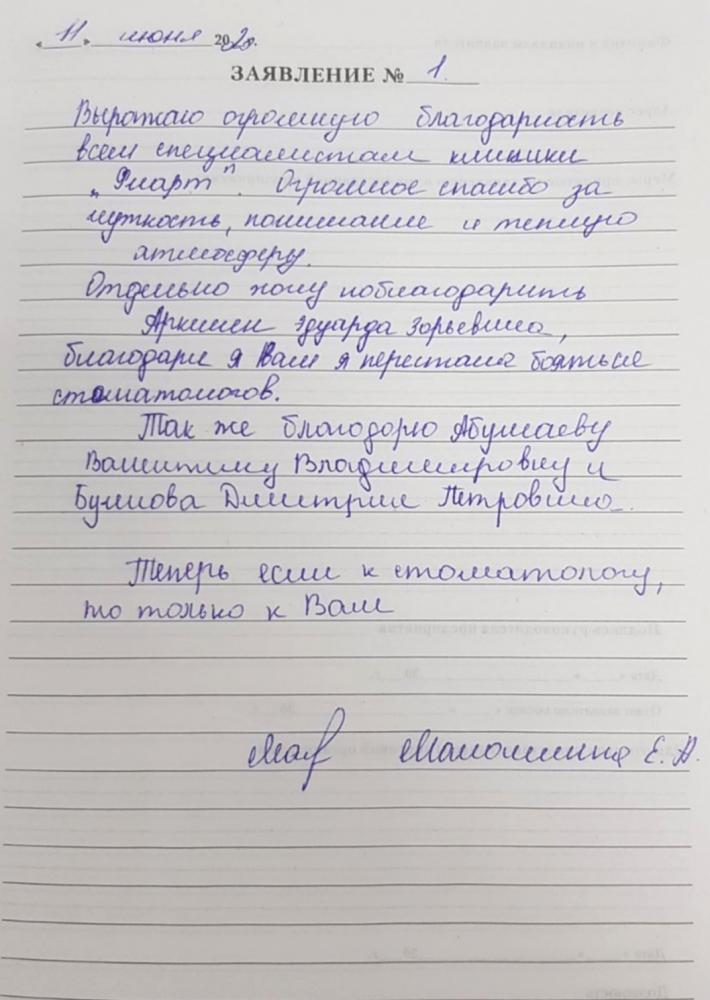 « 11 » июня 2020г.
ЗАЯВЛЕНИЕ № 1.
Выражаю огромную благодарность
всем специалистам клиники
. Огромное спасибо за
чуткость, понимание и теплую
атмосферу.
Отдельно хочу поблагодарить
Эдуарда Зорьевича,
благодаря я Вам я перестала бояться
стоматологов.
Так же благодорю Абушаеву
Валентину Владимировну и
Дмитрия Петровича.
Теперь если к стоматологу,
то только к Вам
Е. А.